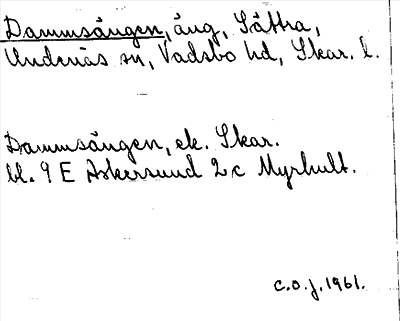 Dammsängen, äng, Sätra,
Undenäs sn, Vadsbo hd, Skar. l.
Dammsängen, ek. Skar.
bl. 9 E Askersund 2c Myrhult.
C.O.J. 1961.